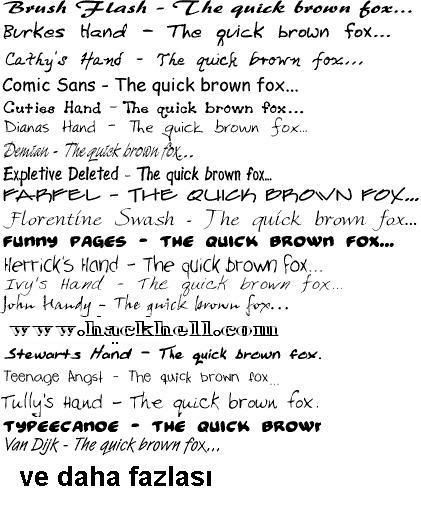 Brush Flash - The quick brown fox...
Burkes Hand - The quick brown fox...
Cathy's Hand - The quick brown fox...
Comic Sans - The quick brown fox...
Cuties Hand - The quick brown fox...
Dianas Hand - The quick brown fox...
Demian - The quick brown fox...
Expletive Deleted - The quick brown fox...
FARFEL - THE QUICK BROWN FOX...
Florentine Swash - The quick brown fox...
FUNNY PAGES - THE QUICK BROWN FOX...
Herrick's Hand - The quick brown fox...
Ivy's Hand - The quick brown fox...
John Handy - The quick brown fox...
www.hackhell.com
Stewarts Hand - The quick brown fox.
Teenage Angst - The quick brown fox...
Tully's Hand - The quick brown fox.
TYPEECANOE - THE QUICK BROWN
Van Dijk - The quick brown fox...
ve daha fazlası